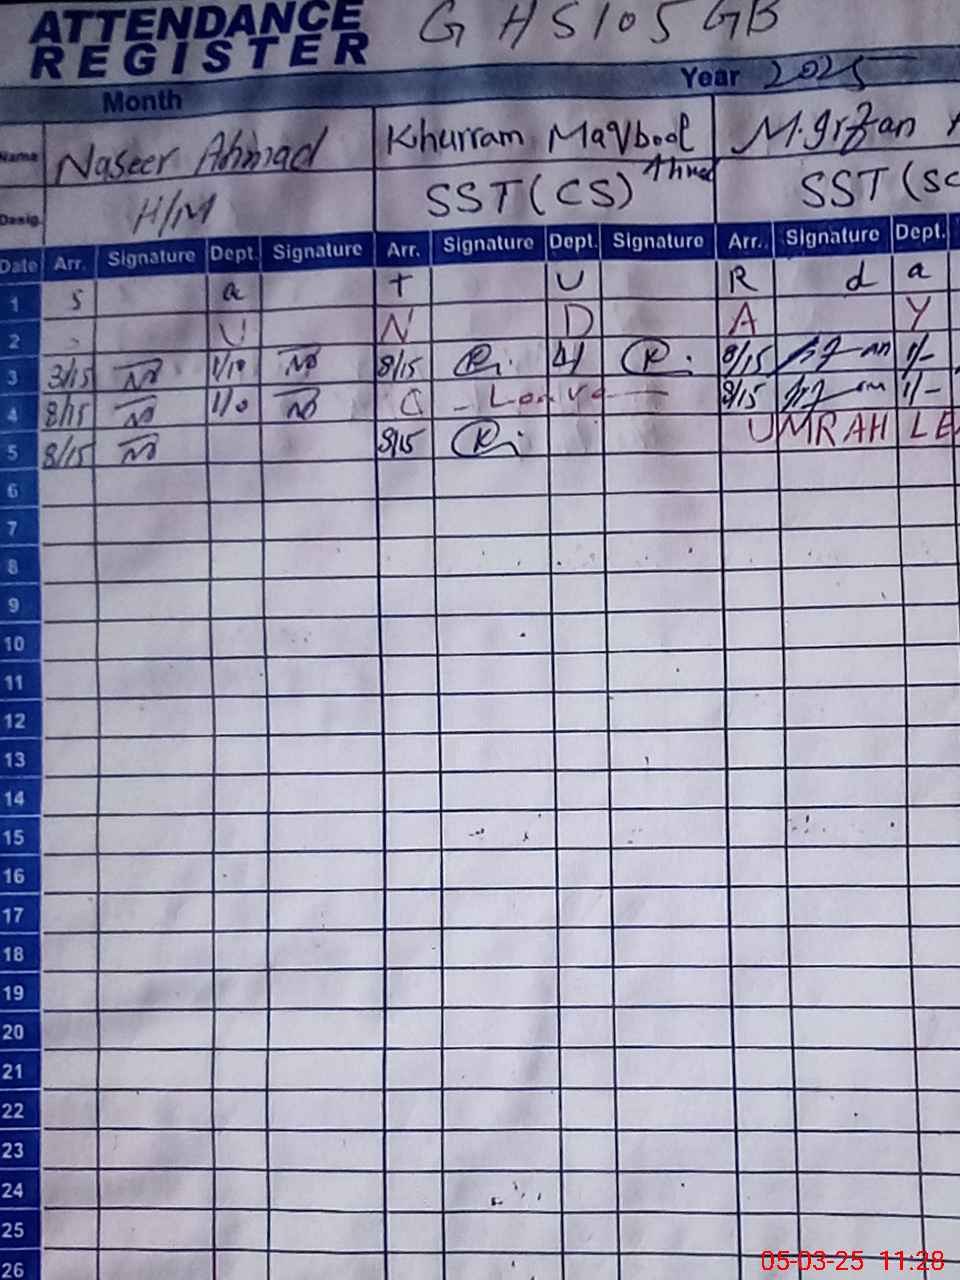 ATTENDANCE REGISTER GHS 105 GB
Month Year 2025
Name Naseer Ahmad Khurram Maqbool Ahmed M. Irfan
Desig. H/M SST(CS) SST(SC
Date Arr. Signature Dept. Signature Arr. Signature Dept. Signature Arr. Signature Dept.
1 S a t U R d a
2 S U N D A Y
3 8/15 1/10 8/15 8/15 1/-
4 8/15 1/0 C - Leave - 8/15 1/-
5 8/15 8/15 UMRAH LE
6
7
8
9
10
11
12
13
14
15
16
17
18
19
20
21
22
23
24
25
26
05-03-25 11:28